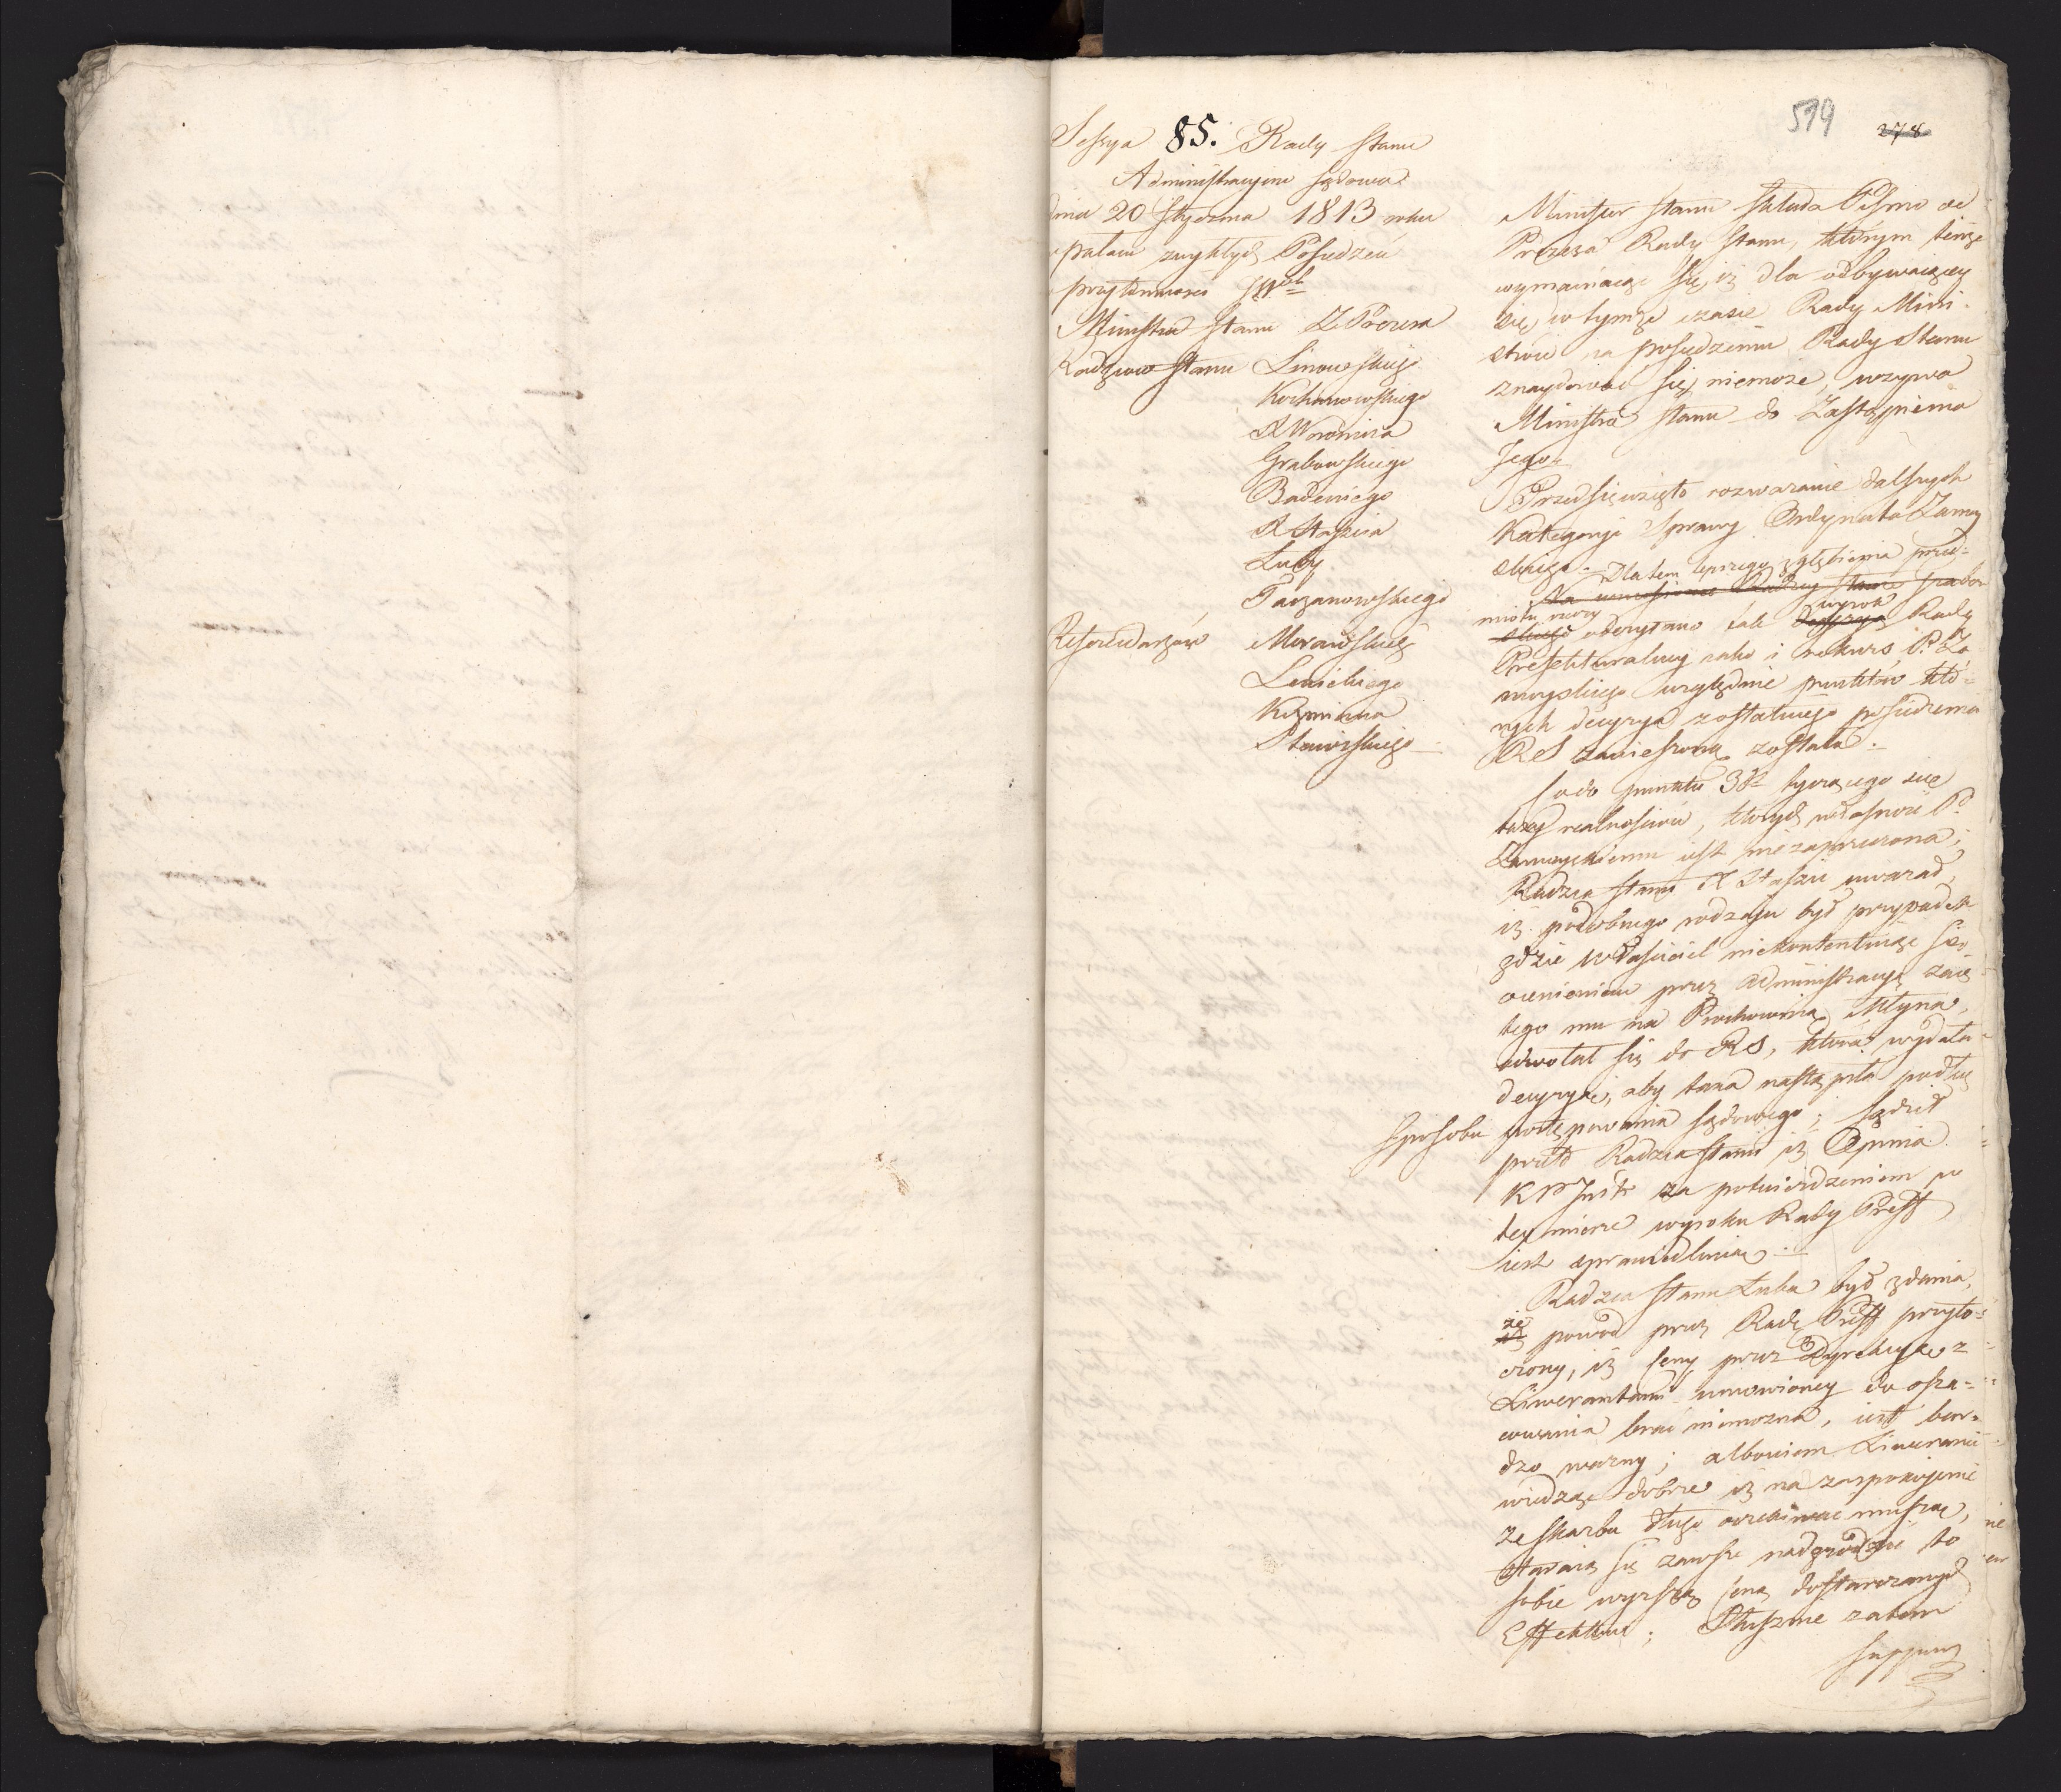 519 278
Sessya 85. Rady Stanu
Administracyino Sądowa
dnia 20 Stycznia 1813 roku
w pałacu zwykłych Posiedzeń
w przytomności JWch
Ministra Stanu
Radzców Stanu Linowskiego
Kochanowskiego
X Woronicza
Grabowskiego
Badeniego
X Staszica
Łuby
Tarzanowskiego
Referendarzów Morawskiego
Lewickiego
Koźmiana
Stawiskiego
Minister Stanu składa Pismo od
Prezesa Rady Stanu, którym tenże
wymawiaiąc się, iż dla odbywaiącey
się w tymże czasie Rady Mini-
strów na posiedzeniu Rady Stanu
znaydować się niemoże, wzywa
Ministra Stanu do Zastąpienia
Jego.
Przedsięwzięto rozważanie dalszych
Kategoryi Sprawy Ordynata Zamoy
skiego. Dla tem lepszego zgłębienia przed-
Na wniesienie Radzcy Stanu Grabow
miotu rzeczy wyrok
skiego odczytano tak decyzyą Rady
Prefekturalney iako i rekurs P. Za
moyskiego względnie punktów któ-
rych decyzya z ostatniego posiedzenia
RS zawieszoną została.
Co do punktu 3go tyczącego się
taxy realnościów, których własność P.
Zamoyskiemu iest niezaprzeczona;
Radzca Stanu X Staszic uważał,
iż podobnego rodzaju był przypadek
gdzie właściciel niekontentuiąc się
ocenieniem przez Administracyę zaię
tego mu na Prochownią Młyna,
odwołał się do RS, która wydała
decyzyę, aby taxa nastąpiła podług
sposobu postępowania sądowego; sądził
przeto Radzca Stanu iż Opinia
KP Instr za potwierdzeniem w
tey mierze wyroku Rady Preff
iest sprawiedliwą.
Radzca Stanu Łuba był zdania,
że
iż powód przez Radę Preff przyto-
czony, iż ceny przez Dyrekcyę z
Liwerantami umówioney do osza-
cowania brać niemożna, iest bar-
dzo ważny; albowiem Liweranci
wiedząc dobrze iż na zaspokojenie
ze skarbu długo oczekiwać muszą,
staraią się zawsze nadgrodzić to
sobie wyższą ceną dostarczanych
Effektów; Słusznie zatem